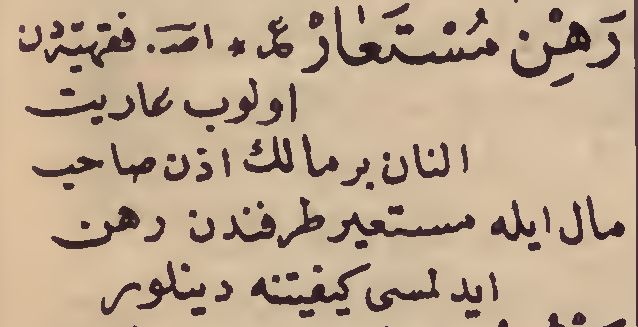 رَهْنِ مُسْتَعَارْ عـ * اصـ. فقهیه‌دن
اولوب عاریت
النان بر مالك اذن صاحب
مال ایله مستعیر طرفندن رهن
ایدلمسی كیفیتنه دینلور